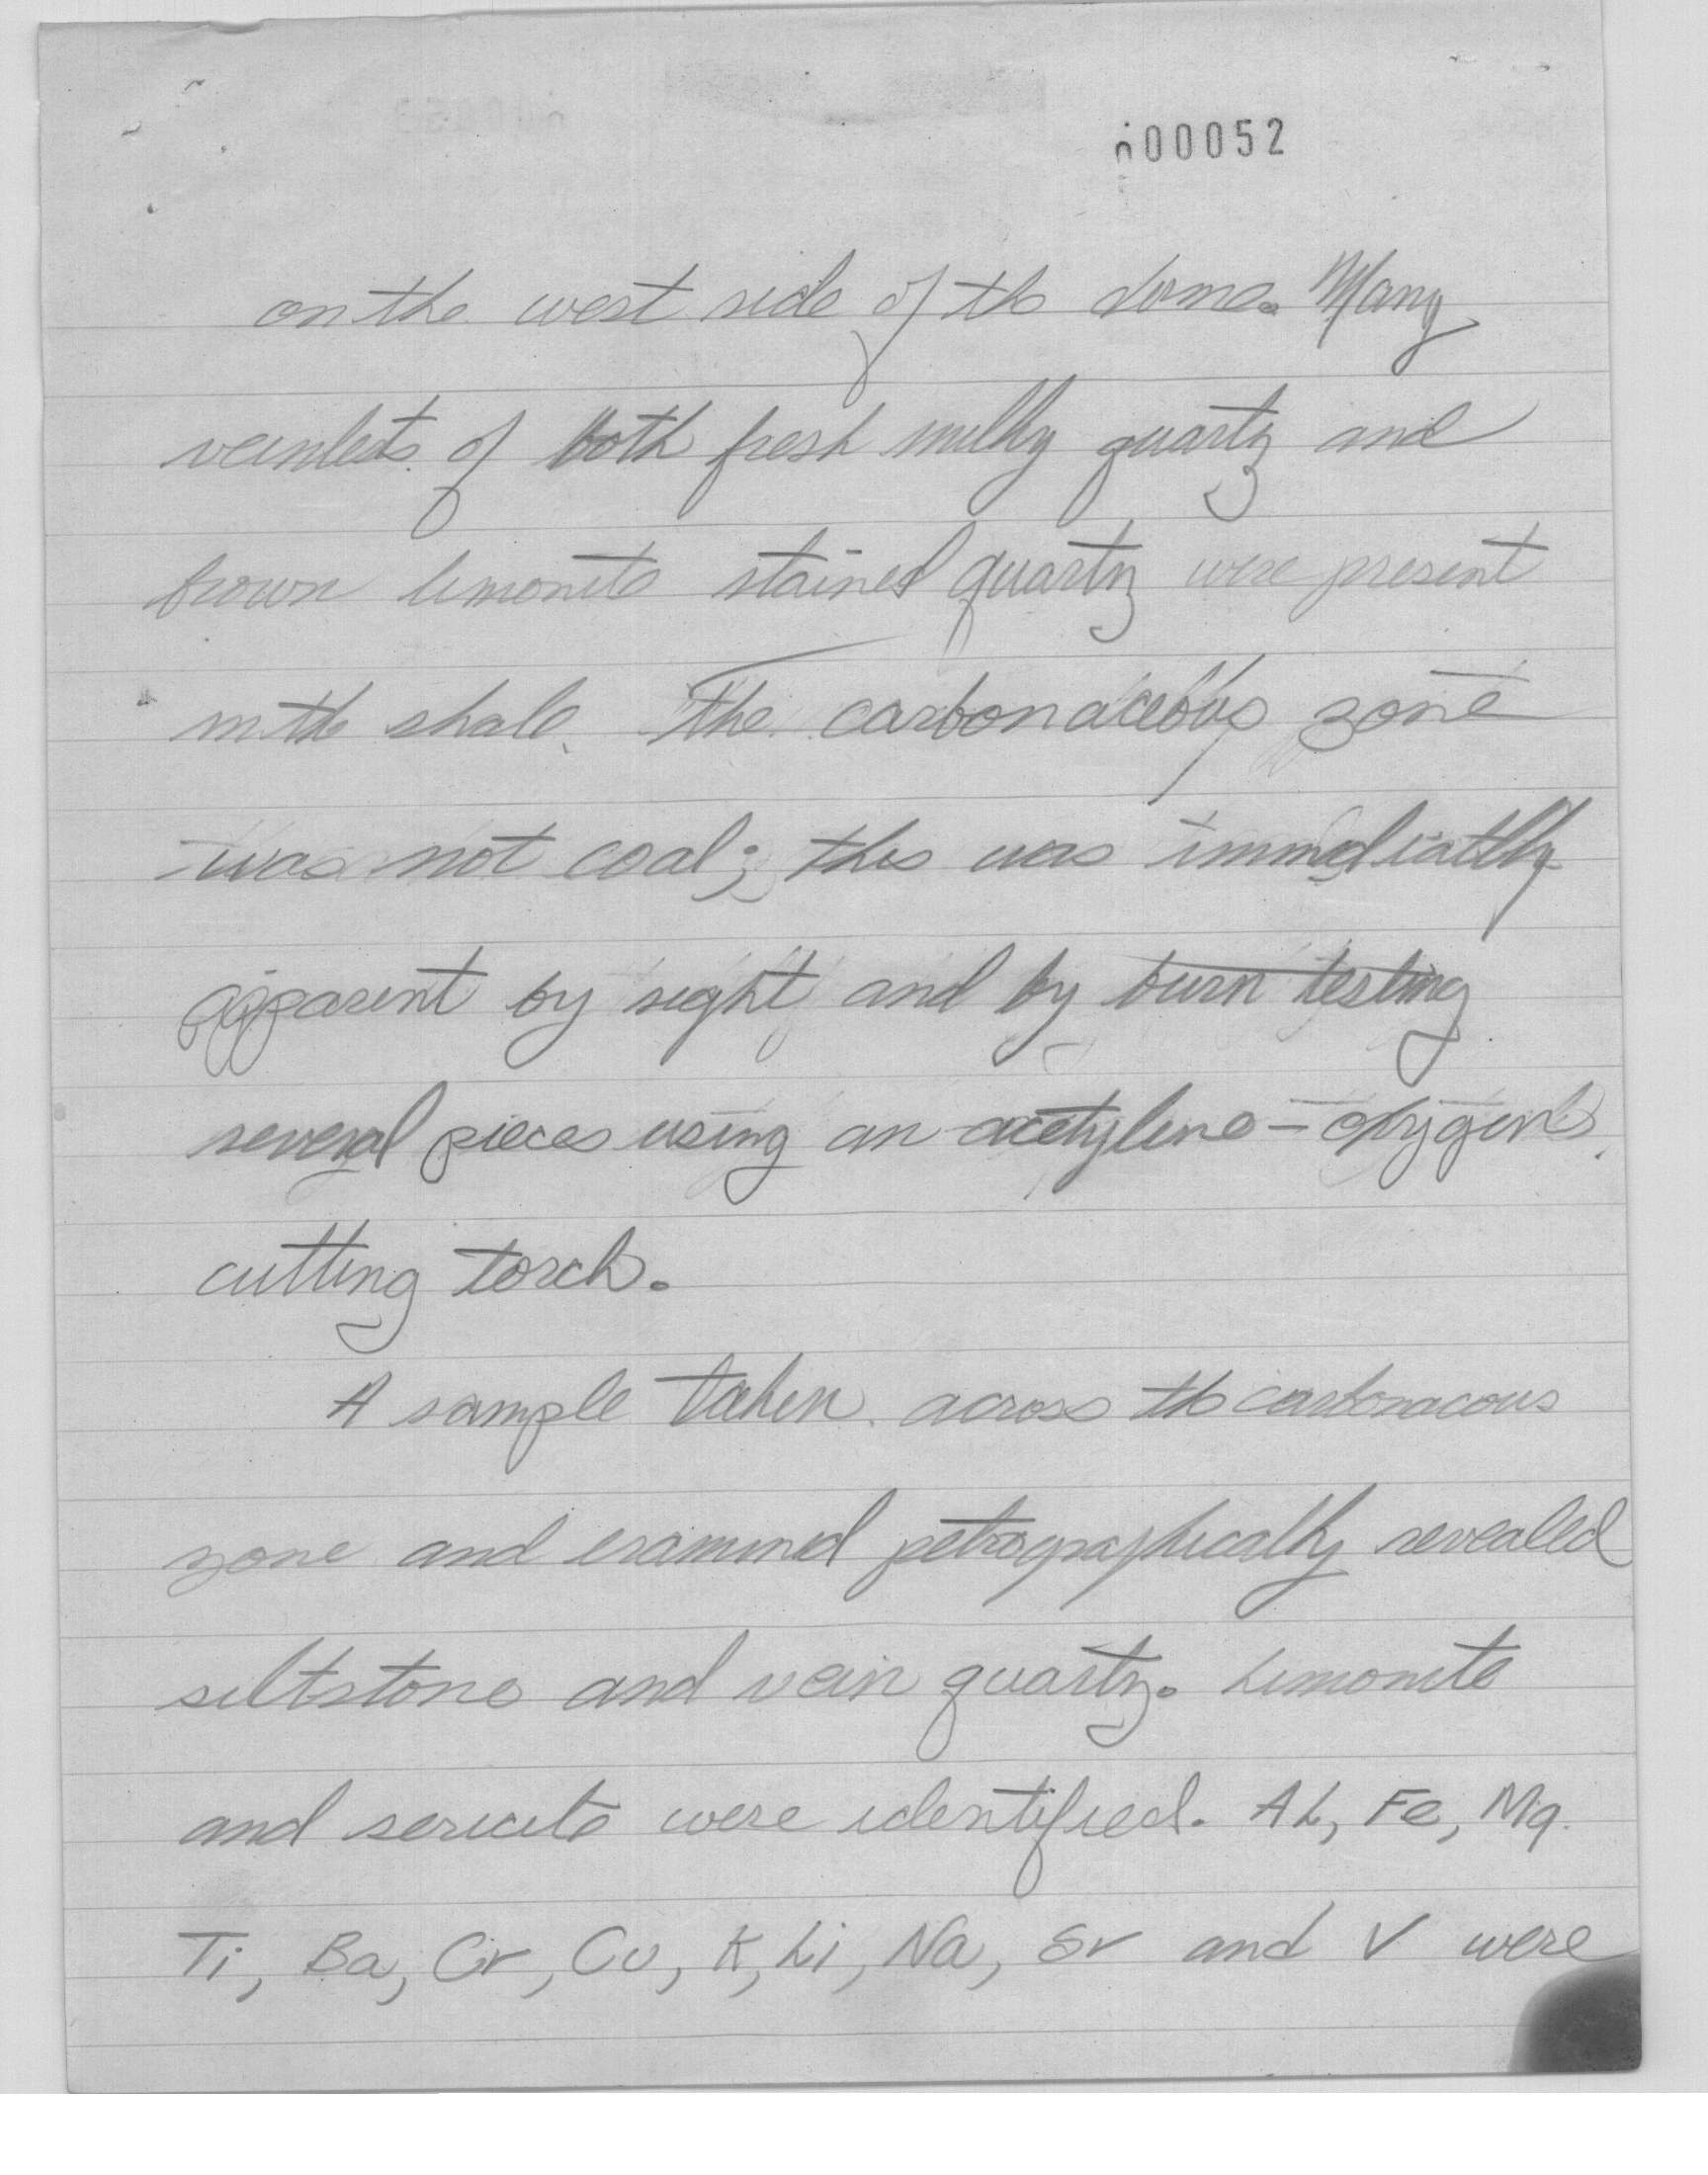 000052
on the west side of the dome. Many
veinlets of both fresh milky quartz and
brown limonite stained quartz were present
in the shale. The carbonaceous zone
was not coal; this was immediatlly
apparent by sight and by burn testing
several pieces using an acetylene - oxygen
cutting torch.
A sample taken across the carbonacous
zone and examined petrographically revealed
siltstone and vein quartz. Limonite
and sericite were identified. AL, Fe, Mg.
Ti, Ba, Cr, Cu, K, Li, Na, Sr and V were